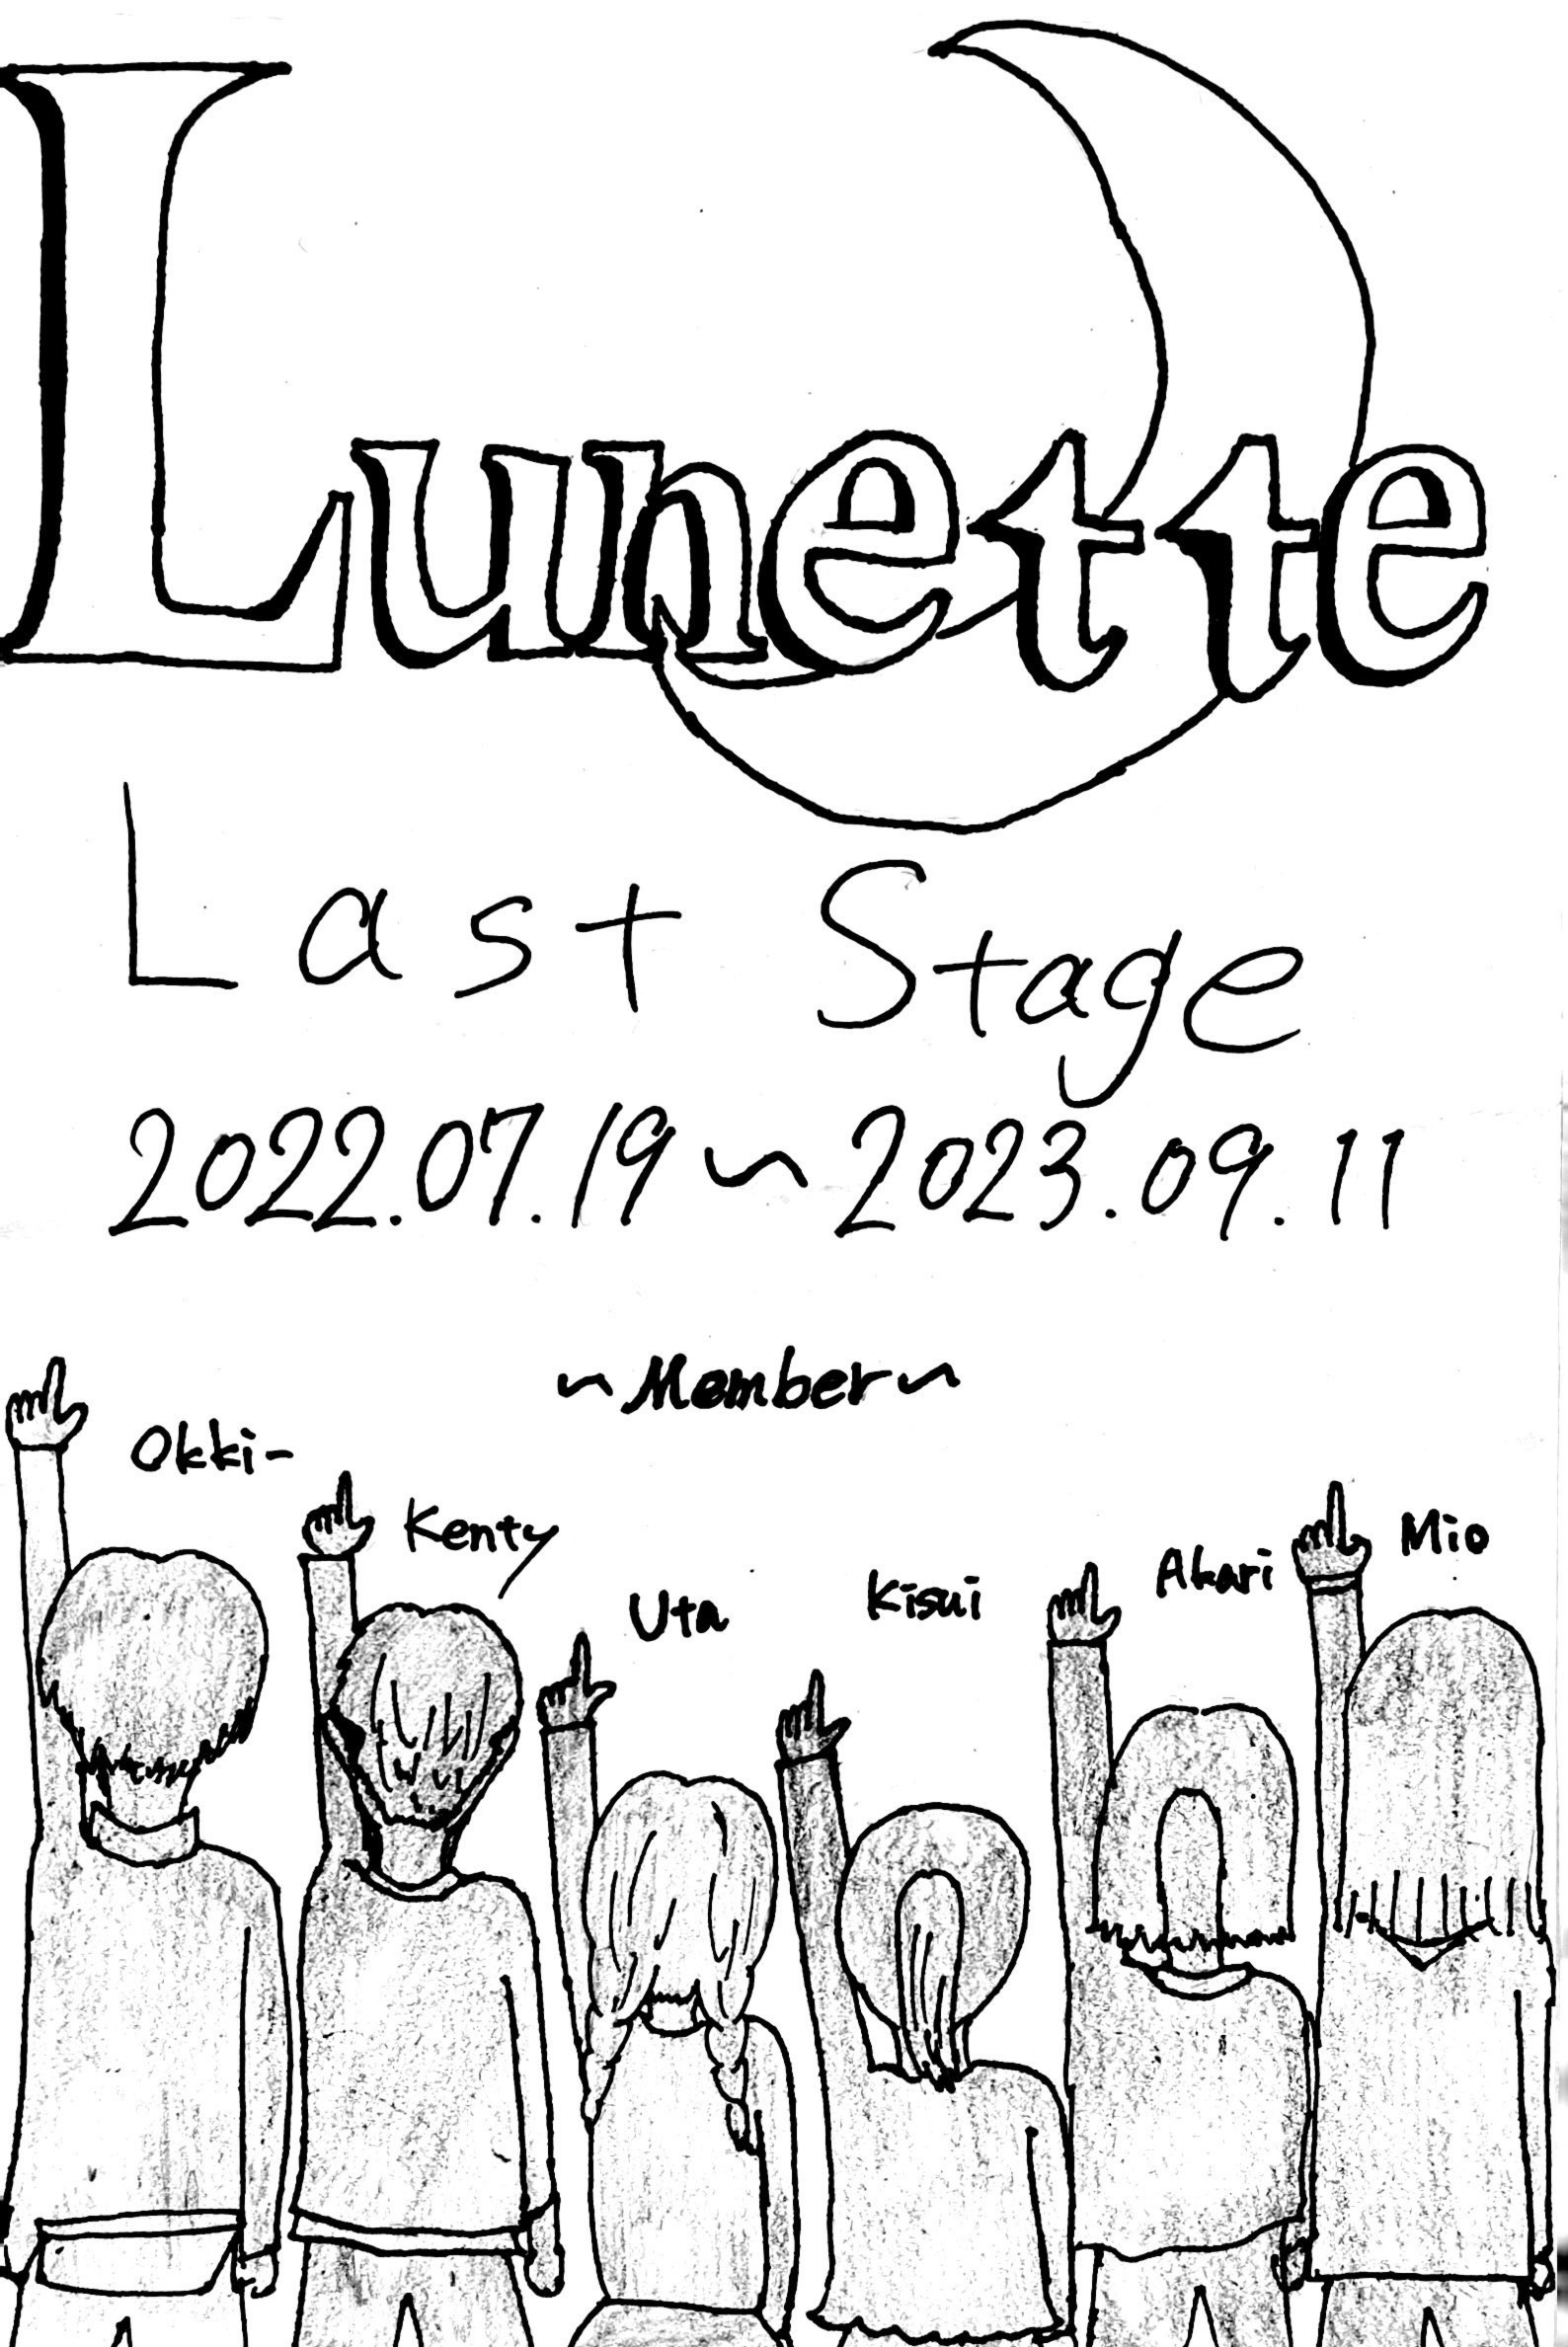 Lunette
Last Stage
2022.07.19～2023.09.11
～Member～
Okki-
Kenty
Uta
Kisui
Akari
Mio